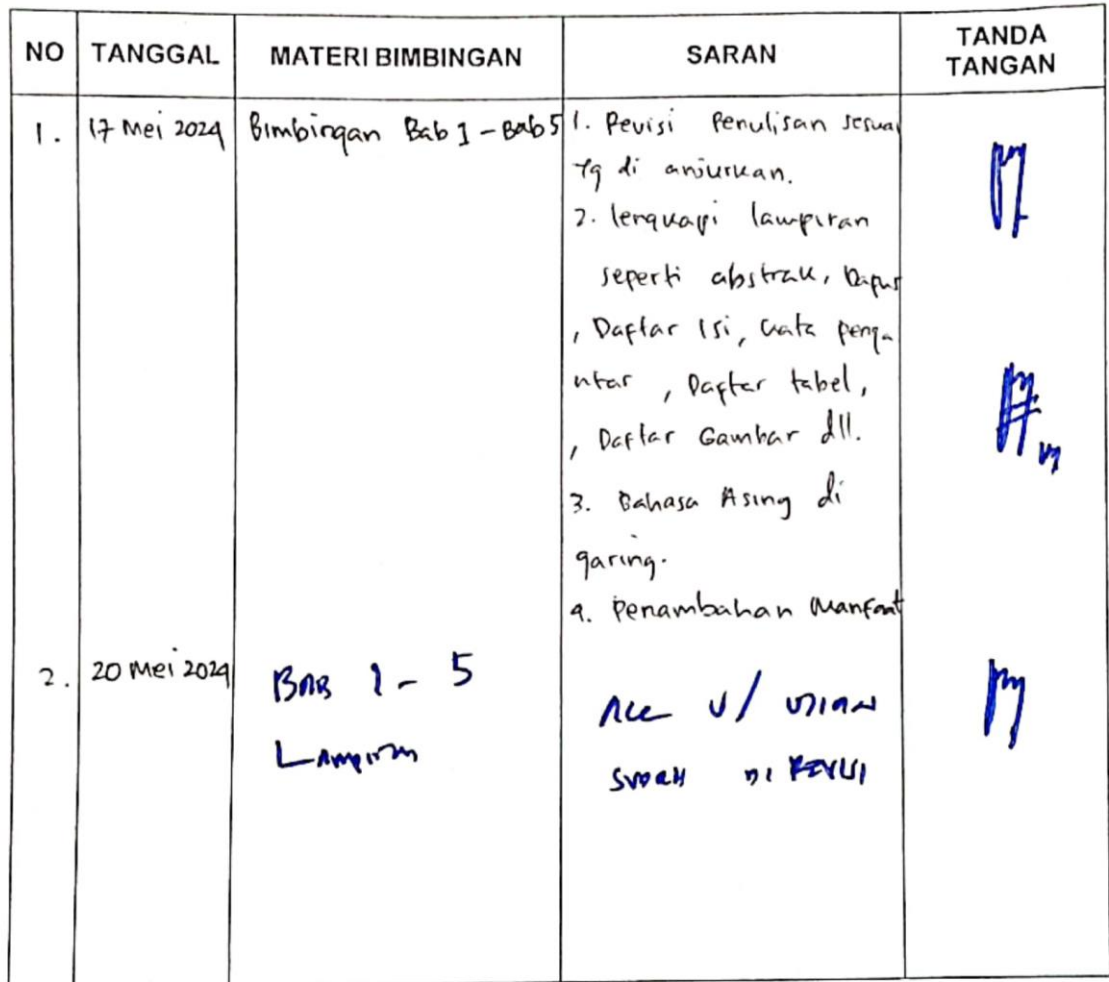 NO TANGGAL MATERI BIMBINGAN SARAN TANDA TANGAN
1. 17 Mei 2024 Bimbingan Bab 1 - Bab 5 1. Revisi Penulisan sesuai
yg di anjurkan.
2. lengkapi lampiran
seperti abstrak, Dapus
, Daftar Isi, kata penga
ntar , Daftar tabel,
, Daftar Gambar dll.
3. Bahasa Asing di
garing.
4. Penambahan Manfaat
2. 20 Mei 2024 BAB 1 - 5 Acc U/ UJIAN
Lampiran SUDAH DI REVISI